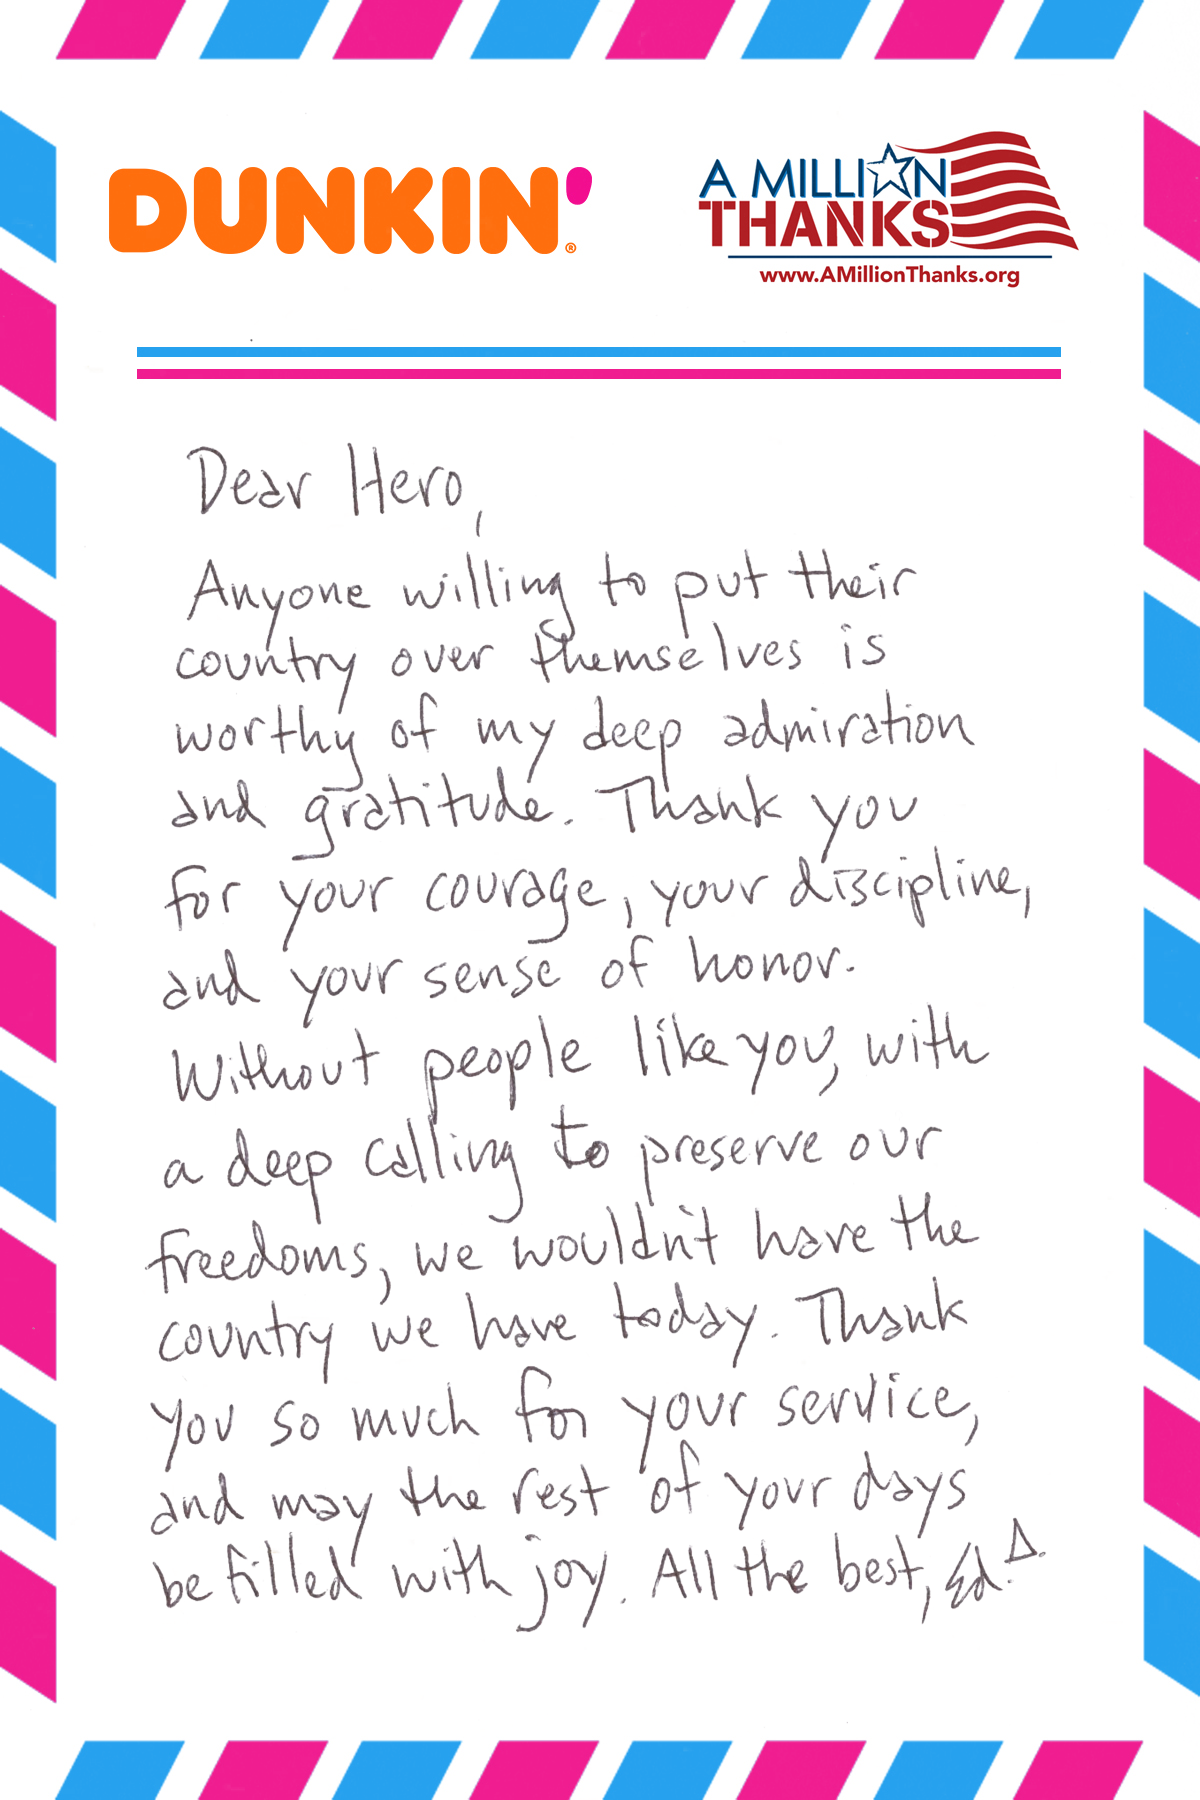 DUNKIN'®
A MILLION
THANKS
www.AMillionThanks.org
Dear Hero,
Anyone willing to put their
country over themselves is
worthy of my deep admiration
and gratitude. Thank you
for your courage, your discipline,
and your sense of honor.
Without people like you, with
a deep calling to preserve our
freedoms, we wouldn't have the
country we have today. Thank
you so much for your service,
and may the rest of your days
be filled with joy. All the best, Ed.